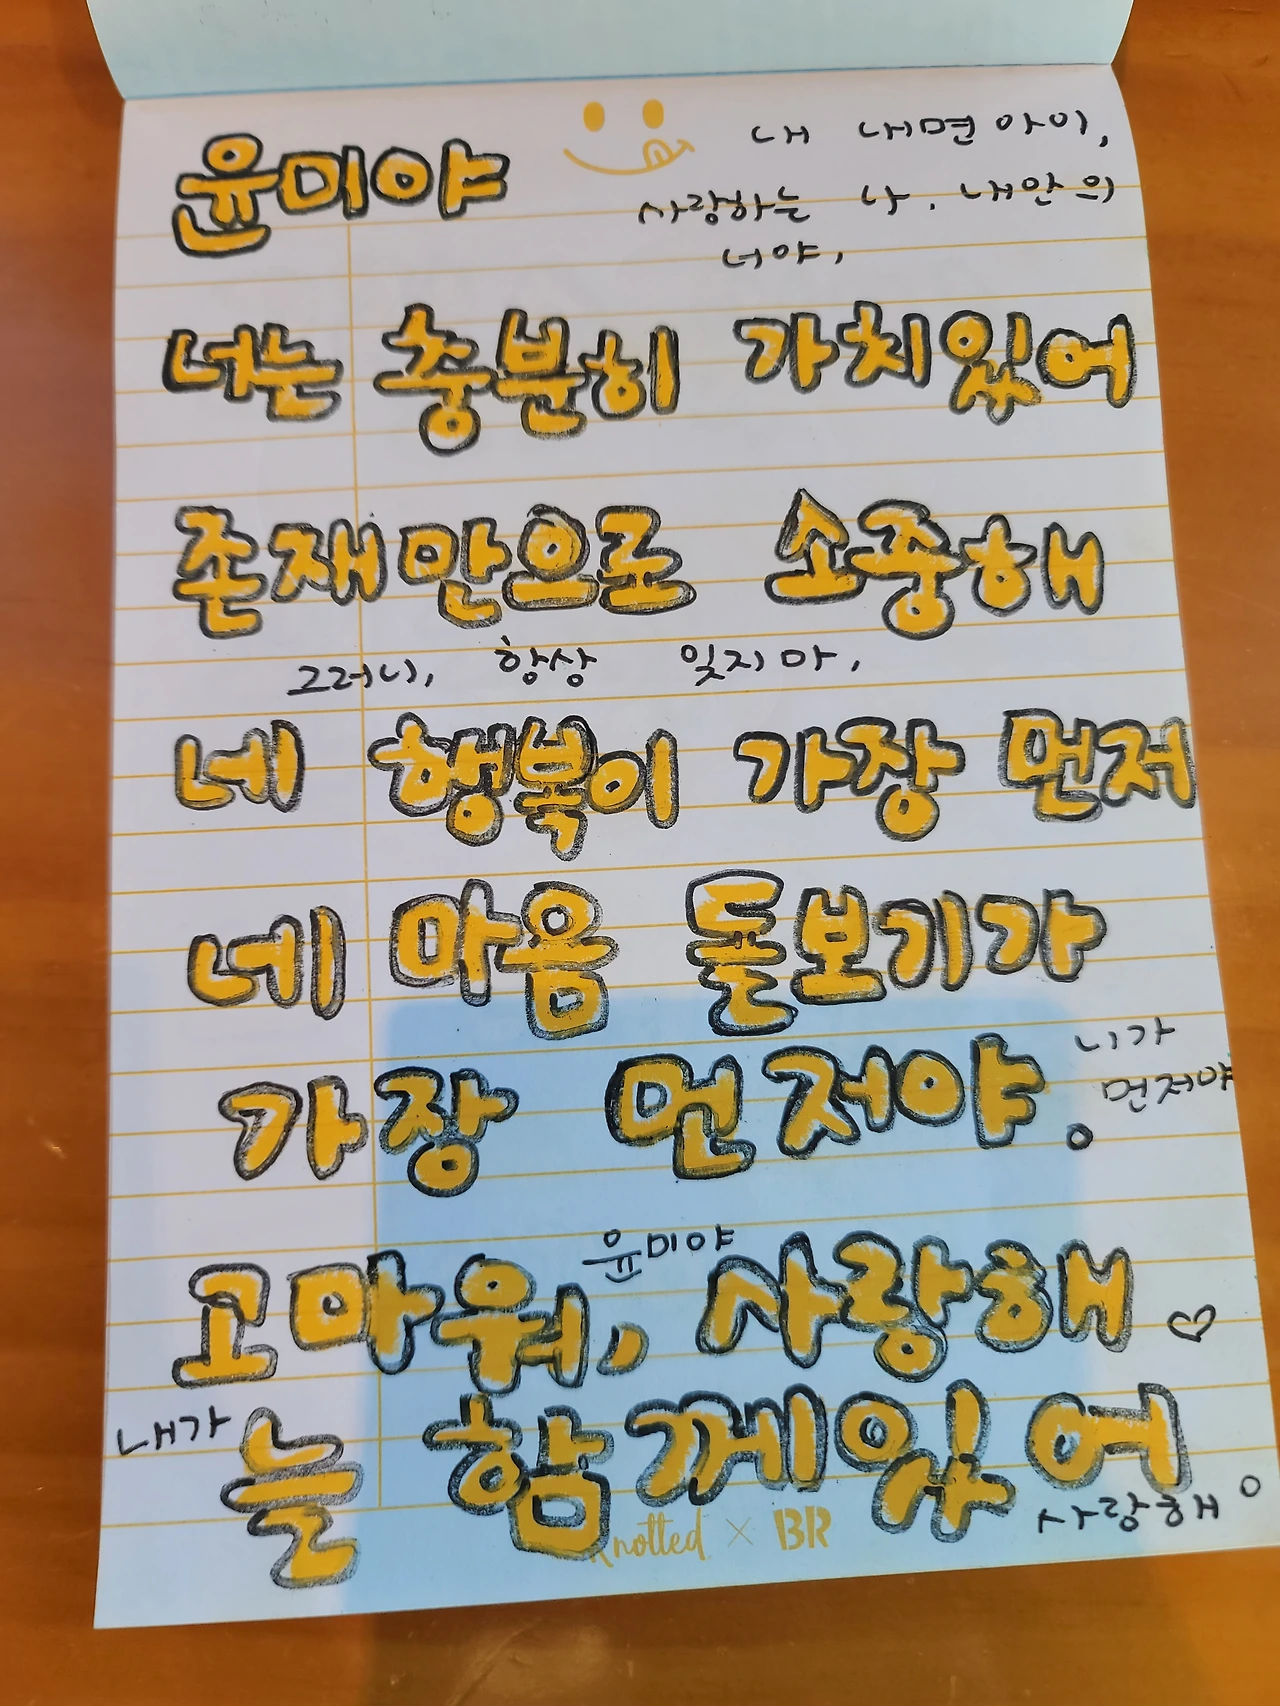 윤미야
내 내면아이,
사랑하는 나. 내안의
너야,
너는 충분히 가치있어
존재만으로 소중해
그러니, 항상 잊지마,
네 행복이 가장 먼저
네 마음 돌보기가
가장 먼저야.
니가
먼저야
고마워, 윤미야 사랑해 ♡
내가 늘 함께있어
사랑해.
Knotted × BR